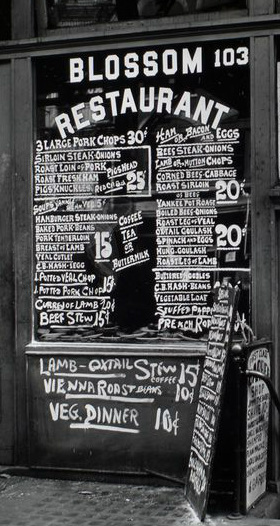 BLOSSOM 103
RESTAURANT
3 LARGE PORK CHOPS 30¢
SIRLOIN STEAK-ONIONS
ROAST LOIN OF PORK
ROAST FRESH HAM
PIGS KNUCKLES
PIGSHEAD
25¢
HAMBURGER STEAK-ONIONS
BAKED PORK-BEANS
PORK TENDERLOIN
BREAST OF LAMB
VEAL CUTLET
C.B.HASH-EGG
15¢
COFFEE
TEA
OR
BUTTERMILK
POTTED VEAL CHOP
POTTED PORK CHOP 15¢
CURRY OF LAMB 20¢
BEEF STEW 15¢
HAM OR BACON AND EGGS
BEEF STEAK-ONIONS
LAMB OR MUTTON CHOPS
CORNED BEEF-CABBAGE
ROAST SIRLOIN
OF BEEF
20¢
YANKEE POT ROAST
BOILED BEEF-ONIONS
ROAST LEG OF VEAL
OXTAIL GOULASH
SPINACH AND EGGS
HUNG.GOULASH
ROAST LEG OF LAMB
20¢
C.B.HASH-BEANS
VEGETABLE LOAF
STUFFED
FRENCH
LAMB-OXTAIL STEW 15¢
COFFEE
VIENNA ROAST BEANS 10¢
VEG. DINNER 10¢